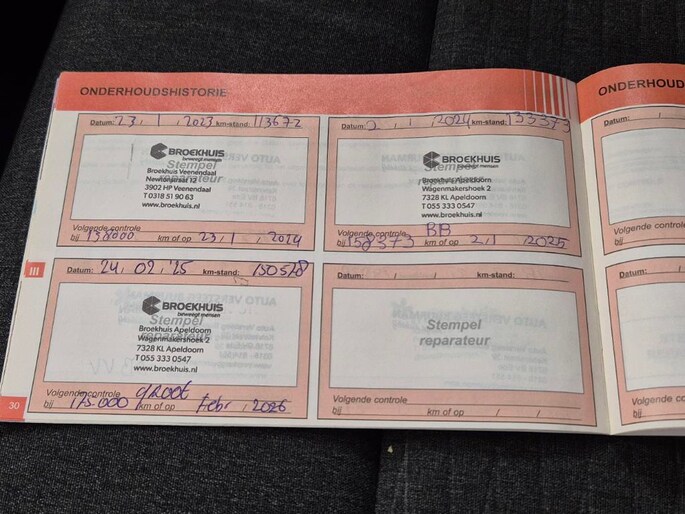 ONDERHOUDSHISTORIE
ONDERHOUD
Datum: 23 / 1 / 2023 km-stand: 113672
BROEKHUIS
beweegt mensen
Stempel
reparateur
Broekhuis Veenendaal
Newtonstraat 12
3902 HP Veenendaal
T 0318 51 90 63
www.broekhuis.nl
Volgende controle
bij 138000 km of op 23 / 1 / 2024
Datum: 2 / 1 / 2024 km-stand: 133373
BROEKHUIS
beweegt mensen
Stempel
reparateur
Broekhuis Apeldoorn
Wagenmakershoek 2
7328 KL Apeldoorn
T 055 333 0547
www.broekhuis.nl
Volgende controle BB
bij 158373 km of op 2 / 1 / 2025
Datum: /
Volgende controle
bij
III
Datum: 24 / 02 / '25 km-stand: 150528
BROEKHUIS
beweegt mensen
Stempel
reparateur
Broekhuis Apeldoorn
Wagenmakershoek 2
7328 KL Apeldoorn
T 055 333 0547
www.broekhuis.nl
Volgende controle groot
bij 175.000 km of op Febr / 2026
Datum: / / km-stand:
Stempel
reparateur
Volgende controle
bij km of op / /
Datum: /
Volgende controle
bij
30